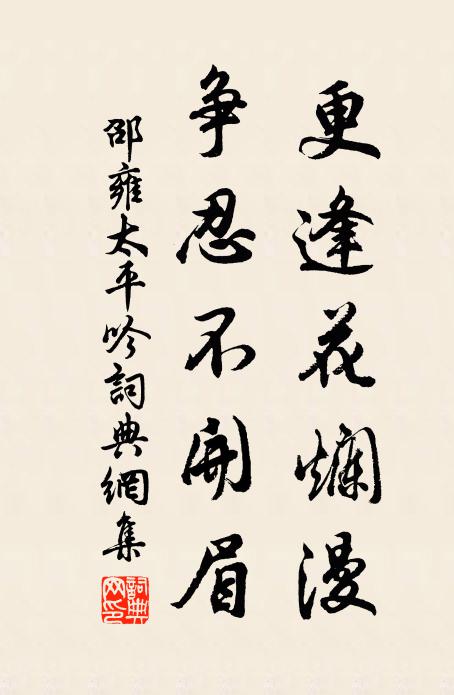 更逢花爛漫
爭忍不開眉
邵雍太平吟詞典網集
詞典網印